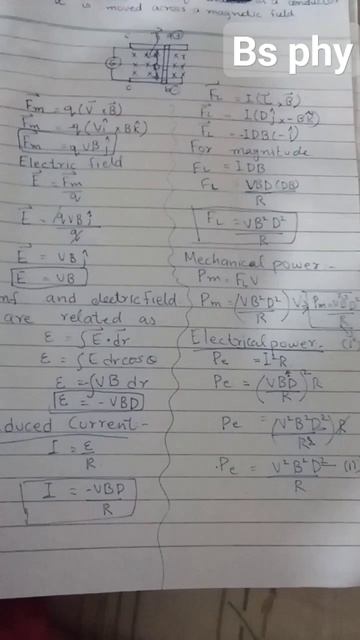 is moved across a magnetic field
Bs phy
F⃗m = q(V⃗ × B⃗)
F⃗m = q(Vî × BK̂)
F⃗m = qVBĵ
Electric field
E⃗ = F⃗m/q
E⃗ = qVBĵ/q
E⃗ = VBĵ
E = VB
emf and electric field
are related as
ε = ∫E⃗.dr⃗
ε = ∫E dr cosθ
ε = ∫VB dr
ε = -VBD
duced Current-
I = ε/R
I = -VBD/R
F⃗L = I(L⃗ × B⃗)
F⃗L = I(Dĵ × -BK̂)
F⃗L = -IDB(-î)
For magnitude
FL = IDB
FL = VBD(DB)/R
FL = VB²D²/R
Mechanical power-
Pm = FLV
Pm = (VB²D²/R)V
Electrical power-
Pe = I²R
Pe = (VBD/R)²R
Pe = (V²B²D²/R²)R
Pe = V²B²D²/R